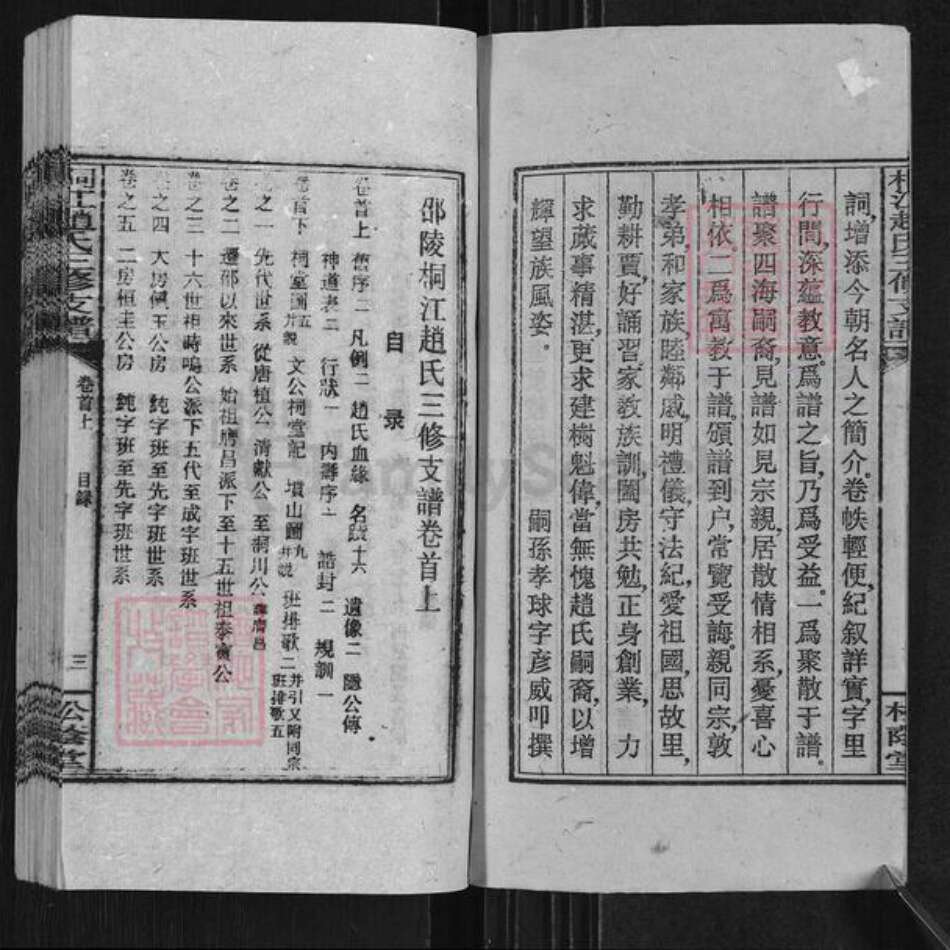 詞,增添今朝名人之簡介。卷帙輕便,紀叙詳實,字里
行間,深蘊教意。爲譜之旨,乃爲受益。一爲聚散于譜。
譜聚四海嗣裔,見譜如見宗親,居散情相系,憂喜心
相依。二爲寓教于譜,頒譜到户,常覽受誨。親同宗,敦
孝弟,和家族,睦鄰戚,明禮儀,守法紀,愛祖國,思故里,
勤耕賈,好誦習,家教族訓,闔房共勉,正身創業,力
求蕆事精湛,更求建樹魁偉,當無愧趙氏嗣裔,以增
輝望族風姿。
嗣孫孝球字彦威叩撰
邵陵桐江趙氏三修支譜卷首上
自录
卷首上 舊序二 凡例二 趙氏血緣 名蹟十六 遺像二 隱公傳
神道表二 行狀一 内壽序一 誥封二 規訓一
卷首下 祠堂圖五并説 文公祠堂記 墳山圖九并説 班排歌二并引又附同宗班排歌五
卷之一 先代世系 從唐植公 清獻公 至洞川公
卷之二 遷邵以來世系 始祖膺昌派下至十五世祖泰 公
卷之三 十六世祖時鳴公派下五代至成字班世系
卷之四 大房佩玉公房 純字班至先字班世系
卷之五 二房桓圭公房 純字班至先字班世系
桐江趙氏三修支譜
卷首上 目録
三
公蔭堂